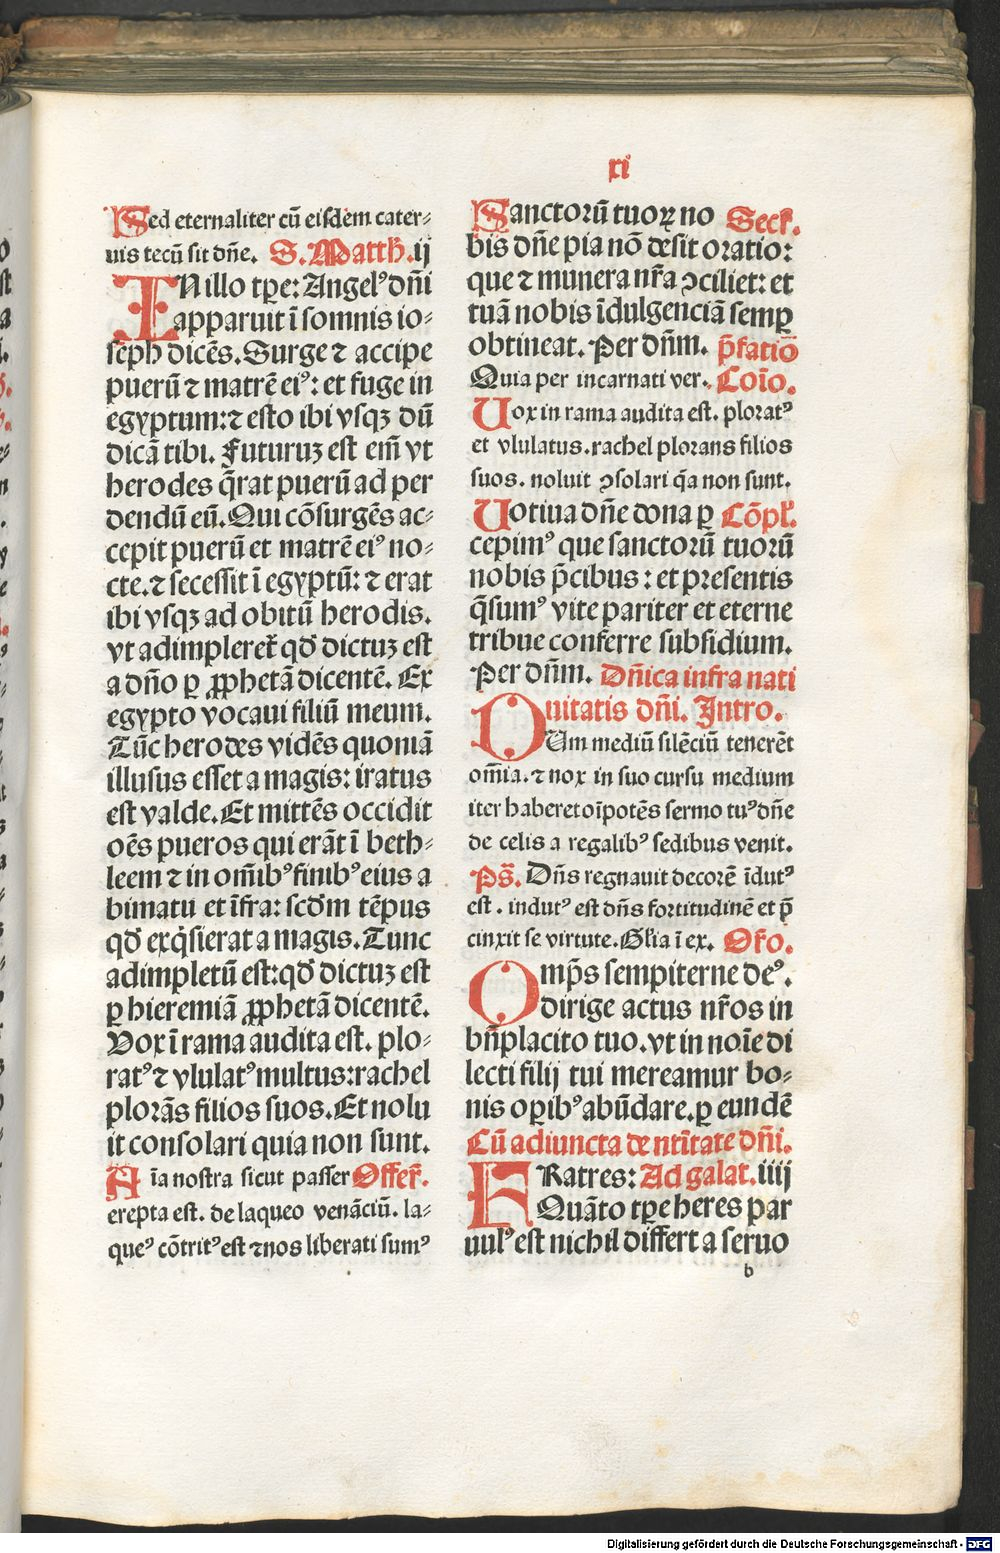 xi
Sed eternaliter cū eisdem cater⸗
uis tecū sit dn̄e. S. Matth. ij
IN illo tp̄e: Angelꝰ dn̄i
apparuit ī somnis io⸗
seph dicēs. Surge ⁊ accipe
puerū ⁊ matrē eiꝰ: et fuge in
egyptum: ⁊ esto ibi vsqꝫ dū
dicā tibi. Futuruꝫ est em̄ vt
herodes q̄rat puerū ad per
dendū eū. Qui cōsurgēs ac⸗
cepit puerū et matrē eiꝰ no⸗
cte. ⁊ secessit ī egyptū: ⁊ erat
ibi vsqꝫ ad obitū herodis.
vt adimpleret̄ qd̄ dictuꝫ est
a dn̄o ꝑ ꝓphetā dicentē. Ex
egypto vocaui filiū meum.
Tūc herodes vidēs quoniā
illusus esset a magis: iratus
est valde. Et mittēs occidit
oēs pueros qui erāt ī beth⸗
leem ⁊ in om̄ibꝰ finibꝰ eius a
bimatu et īfra: scd̄m tēpus
qd̄ exq̄sierat a magis. Tunc
adimpletū est: qd̄ dictuꝫ est
ꝑ hieremiā ꝓphetā dicentē.
Vox ī rama audita est. plo⸗
ratꝰ ⁊ vlulatꝰ multus: rachel
plorās filios suos. Et nolu
it consolari quia non sunt.
Aīa nostra sicut passer Offer̄.
erepta est. de laqueo venāciū. la⸗
queꝰ cōtritꝰ est ⁊ nos liberati sumꝰ
Sanctorū tuoꝝ no Secr̄.
bis dn̄e pia nō desit oratio:
que ⁊ munera nr̄a ꝯciliet: et
tuā nobis īdulgenciā semꝑ
obtineat. Per dn̄m. p̄fatiō
Quia per incarnati ver. Coīo.
Uox in rama audita est. ploratꝰ
et vlulatus. rachel plorans filios
suos. noluit ꝯsolari q̄a non sunt.
Uotiua dn̄e dona ꝑ Cōpl̄.
cepimꝰ que sanctorū tuorū
nobis p̄cibus: et presentis
q̄sumꝰ vite pariter et eterne
tribue conferre subsidium.
Per dn̄m. Dn̄ica infra nati
uitatis dn̄i. Intro.
DUm mediū silēciū tenerēt
om̄ia. ⁊ nox in suo cursu medium
iter haberet oīpotēs sermo tuꝰ dn̄e
de celis a regalibꝰ sedibus venit.
Ps̄. Dn̄s regnauit decorē īdutꝰ
est. indutꝰ est dn̄s fortitudinē et p̄
cinxit se virtute. Gl̄ia ī ex. Or̄o.
Omp̄s sempiterne deꝰ.
dirige actus nr̄os in
bn̄placito tuo. vt in noīe di
lecti filij tui mereamur bo⸗
nis oꝑibꝰ abūdare. ꝑ eundē
Cū adiuncta de nt̄itate dn̄i.
FRatres: Ad galat. iiij
Quāto tp̄e heres par
uulꝰ est nichil differt a seruo
b
Digitalisierung gefördert durch die Deutsche Forschungsgemeinschaft - DFG